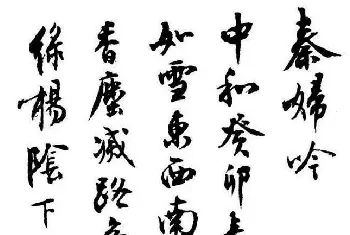 秦婦吟
中和癸卯
如雪東西南
香塵滅路
綠楊陰下